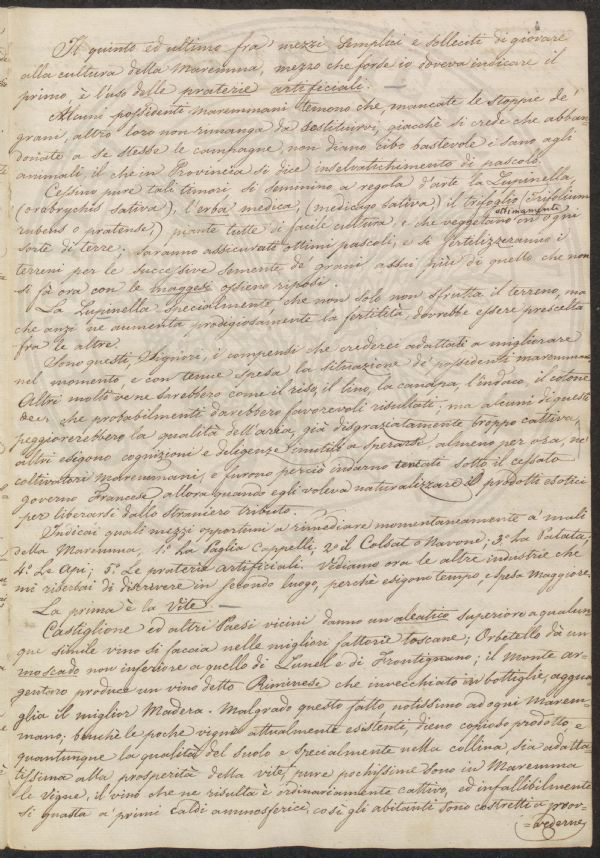 Il quinto ed ultimo fra' mezzi semplici e solleciti di giovare
alla cultura della Maremma, mezzo che forse io doveva indicare il
primo, è l'uso delle praterie artificiali.
Alcuni possidenti maremmani temono che, mancate le stoppie de'
grani, altro loro non rimanga da sostituirvi, giacchè si crede che abban-
donate a se stesse le campagne, non diano cibo bastevole e sano agli
animali, il che in Provincia si dice insalvatichimento di pascolo.
Cessino pure tali timori, si seminino a regola d'arte la Lupinella,
(onobrychis sativa), l'erba medica, (medicago sativa), il trifoglio (Trifolium
rubens o pratense,) piante tutte di facile cultura, e che vegetano ottimamente in ogni
sorte di terre; saranno assicurati ottimi pascoli, e si fertilizzeranno i
terreni per le successive semente de' grani assai più di quello che non
si fà ora con le maggesi ossieno riposi.
La Lupinella specialmente, che non solo non sfrutta il terreno, ma
che anzi ne aumenta prodigiosamente la fertilità, dovrebbe essere prescelta
fra le altre.
Sono questi, Signori, i compensi che crederei adattati a migliorare
nel momento, e con tenue spesa la situazione de' possidenti maremmani
Altri molti ve ne sarebbero come il riso, il lino, la canapa, l'indaco, il cotone
che probabilmente darebbero favorevoli risultati; ma alcuni di questi
peggiorerebbero la qualità dell'aria, già disgraziatamente troppo cattiva,
altri esigono cognizioni e diligenze inutili a sperarsi almeno per ora, ne'
coltivatori maremmani, e furono perciò indarno tentati sotto il cessato
governo Francese, allora quando egli voleva naturalizzare i prodotti esotici
per liberarsi dallo straniero tributo.
Indicai quali mezzi opportuni a rimediare momentaneamente a' mali
della Maremma, 1.º La Paglia Cappelli; 2.º il Colsat o Navone; 3.º La Patata;
4.º Le Api; 5.º Le praterie artificiali. Vediamo ora le altre industrie che
mi riserbai di discrivere in secondo luogo, perchè esigono tempo, e spesa maggiore.
La prima è la Vite.
Castiglione ed altri Paesi vicini danno un aleatico superiore a qualun-
que simile vino si faccia nelle migliori fattorie toscane; Orbetello dà un
moscado non inferiore a quello di Lunel e di Frontignano; il Monte ar-
gentaro produce un vino detto Riminese che invecchiato in bottiglie, aggua-
glia il miglior Madera. Malgrado questo fatto notissimo ad ogni Marem-
mano; benchè le poche vigne attualmente esistenti, dieno copioso prodotto e
quantunque la qualità del suolo e specialmente nella collina, sia adatta-
tissima alla prosperità della vite, pure pochissime sono in Maremma
le vigne, il vino che ne risulta è ordinariamente cattivo, ed infallibilmente
si guasta a' primi caldi ammosferici, così gli abitanti sono costretti a prov-
=vederne